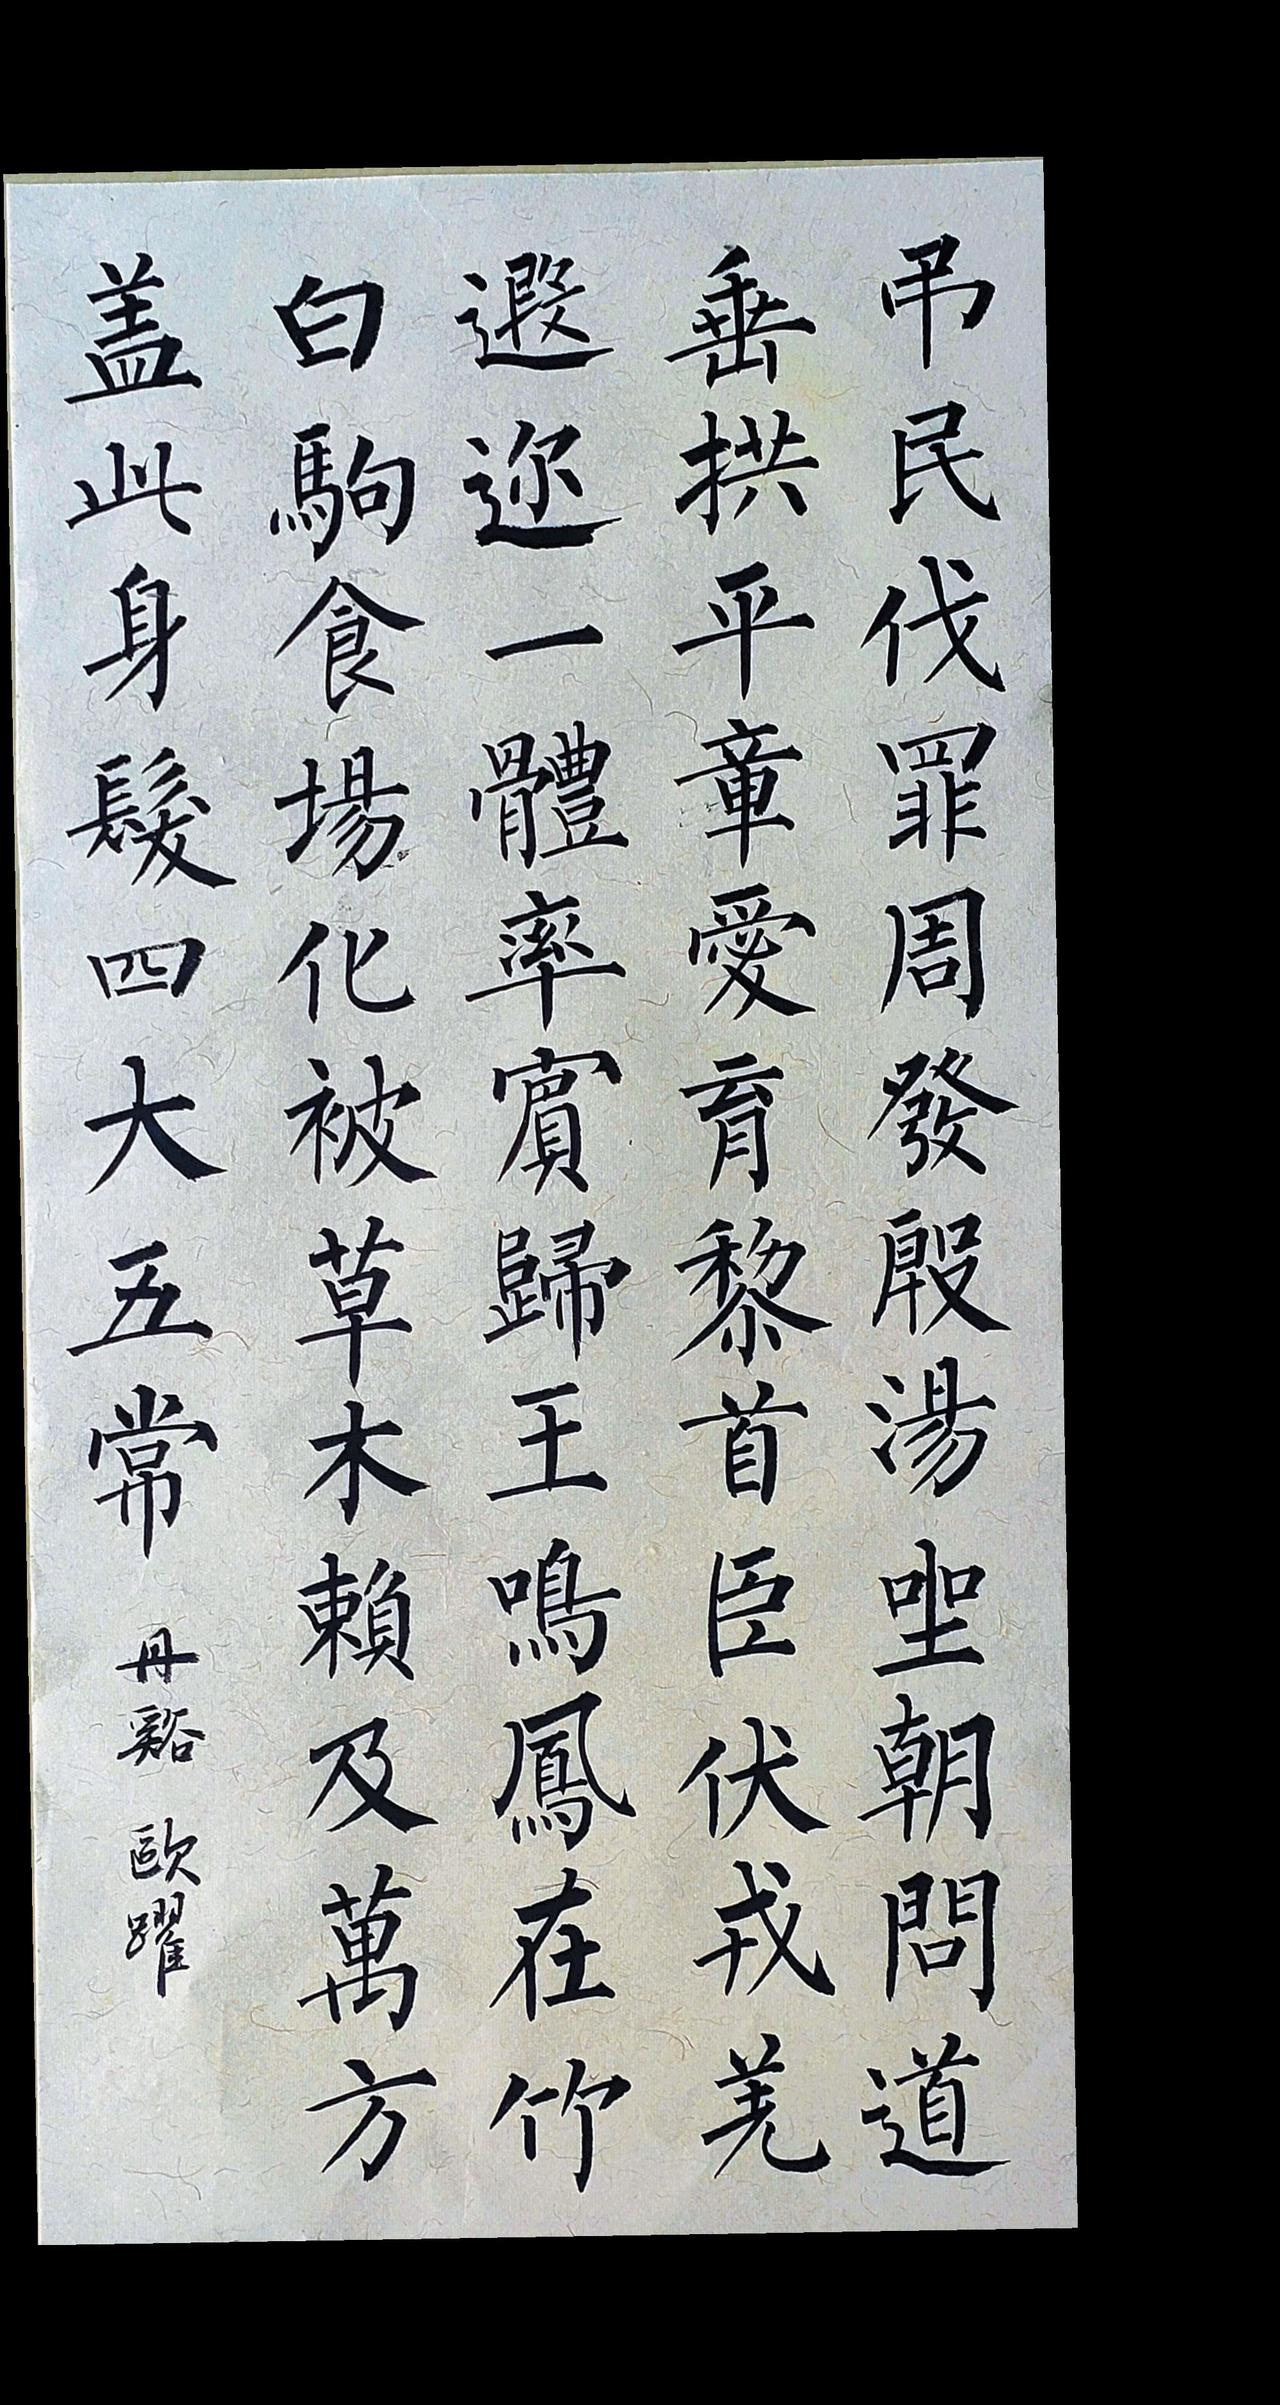 吊民伐罪周發殷湯坐朝問道
垂拱平章愛育黎首臣伏戎羌
遐迩一體率賓歸王鳴鳳在竹
白駒食場化被草木賴及萬方
盖此身髮四大五常 丹谿 歐躍